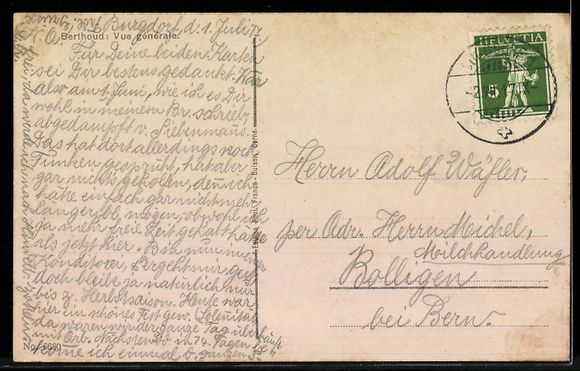 Burgdorf, d. 1. Juli 17
Berthoud: Vue générale.
Für Deine beiden Karten
sei Dir bestens gedankt. War
also am 1. Juni, wie ich es Dir
wohl in meinem Br. schrieb,
abgedampft v. Siebenmaus.
Das hat dort allerdings noch
Funken gesprüht, hat aber
gar nichts geholfen, denn ich
hätte einfach gar nicht mehr
länger bl. mögen, obwohl ich
ja mehr freie Zeit gehabt hätte
als jetzt hier. Bin nun in einer
Konditorei, s'ergeht mir gut
doch bleibe ja natürlich nur
bis z. Herbstsaison. Heute war
hier ein schönes Fest gew.
da waren wir der ganze Tag
Arb. Nächstens in 14 Tagen
komme ich einmal d. ganzen
No. 6680
HELVETIA
5
Herrn Adolf Wäfler,
per Adr. Herrn Michel,
Milchhandlung
Bolligen
bei Bern.